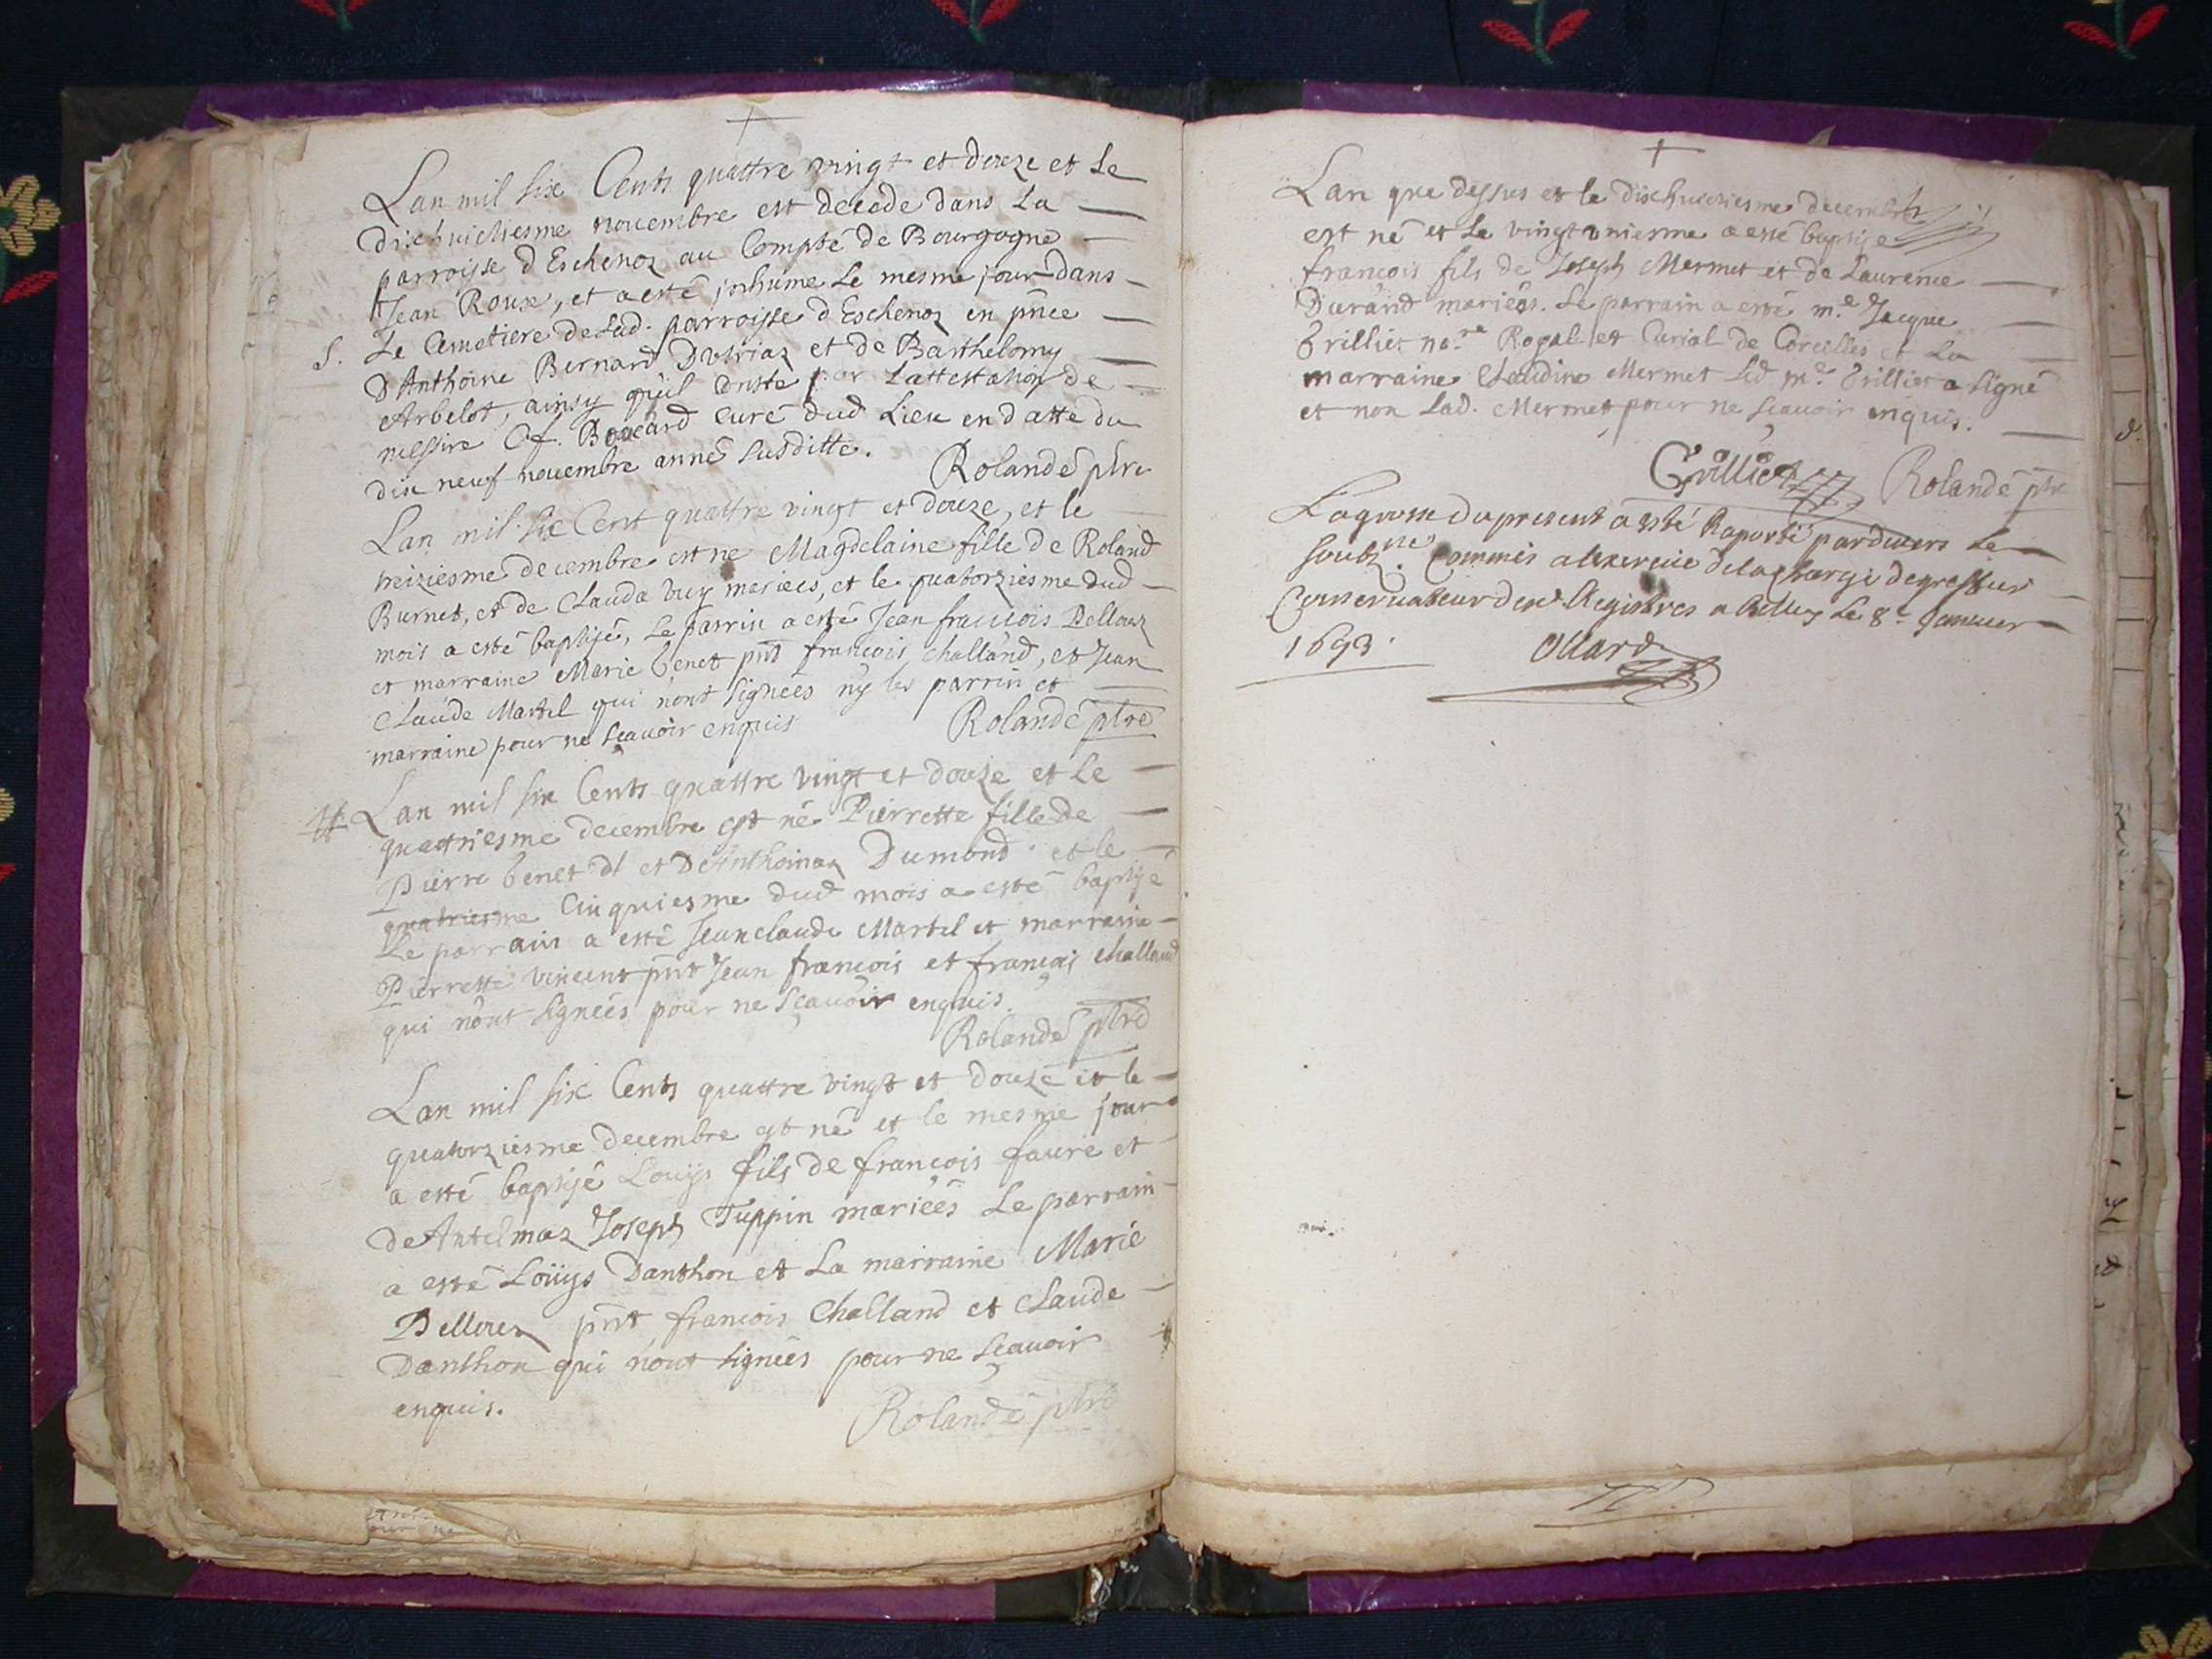 Lan mil six Cents quattre vingt et douze et Le
dixhuictiesme novembre est decede dans La
parroisse d Eschenoz au Compté de Bourgogne
Jean Roux, et a esté inhumé Le mesme jour dans
S. Le Cemetiere de Lad. parroisse d Eschenoz en pñce
D Anthoine Bernard et de Barthelomy
Arbelot, ainsy qu'il Conste par Lattestation de
messire Curé dud Lieu en datte du
dix neuf novembre anné Susditte.
Rolande ptre
Lan mil six Cent quattre vingt et douze, et le
treiziesme decembre est ne Magdelaine fille de Roland
Burnet, et de Clauda Vuy mariees, et le quatorziesme dud
mois a esté baptisé, Le parrin a esté Jean francois Pellouz
et marraine Marie benet pñt francois Challand, et Jean
Claude Martel qui nont Signees ny les parrin et
marraine pour ne Sçavoir enquis
Rolande ptre
Lan mil six Cents quattre vingt et douze et Le
quattriesme decembre est né Pierrette fille de
Pierre benet dt et D Anthoinaz Dumond et le
quatriesme Cinquiesme dud mois a esté baptisé
Le parrain a esté Jean claude Martel et marraine
Pierrette vincent pñt Jean francois et francois Challand
qui nont Signees pour ne Sçavoir enquis.
Rolande ptre
Lan mil six Cents quattre vingt et douze et le
quatorziesme decembre est né et le mesme jour
a esté baptisé Louys fils de francois faure et
de Antelmaz Joseph Tuppin mariées Le parrain
a esté Loüys Danthon et La marraine Marie
Pellouz pñt francois Challand et Claude
Danthon qui nont Signees pour ne Sçavoir
enquis.
Rolande ptre
Lan que dessus et le dixhuictiesme decembre
est né et Le vingt uniesme a esté baptisé
francois fils de Joseph Mermet et de Laurence
Durand mariées. Le parrain a esté m.e Jacque
Trilliet no.re Royal et Curial de Corcelles et La
marraine Claudine Mermet Led m.e Trilliet a Signé
et non Lad. Mermet pour ne Scavoir enquis.
Trilliet
Rolande ptre
La grosse du present a esté Raporté pardevers Le
soubz.né Commis a lexercice de la charge de greffier
Conservateur desd. Registres a Belley Le 8.e Janvier
1693.
Ollard